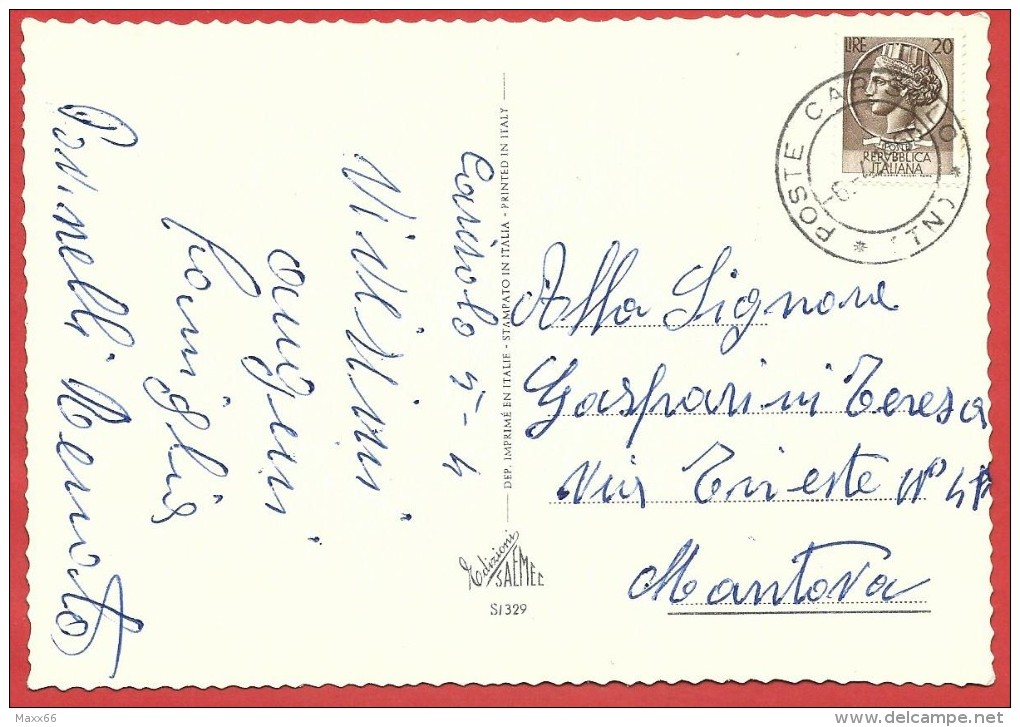 Carisolo 5-4
Vivissimi
auguri
famiglia
Renato
DEP. IMPRIMÉ EN ITALIE - STAMPATO IN ITALIA - PRINTED IN ITALY
Edizioni
SAEMEC
S/329
LIRE 20
POSTE
REPVBBLICA
ITALIANA
POSTE CARISOLO * (TN) *
Alla Signora
Gasparini Teresa
Via Trieste N°
Mantova
Maxx66
www.delcampe.net